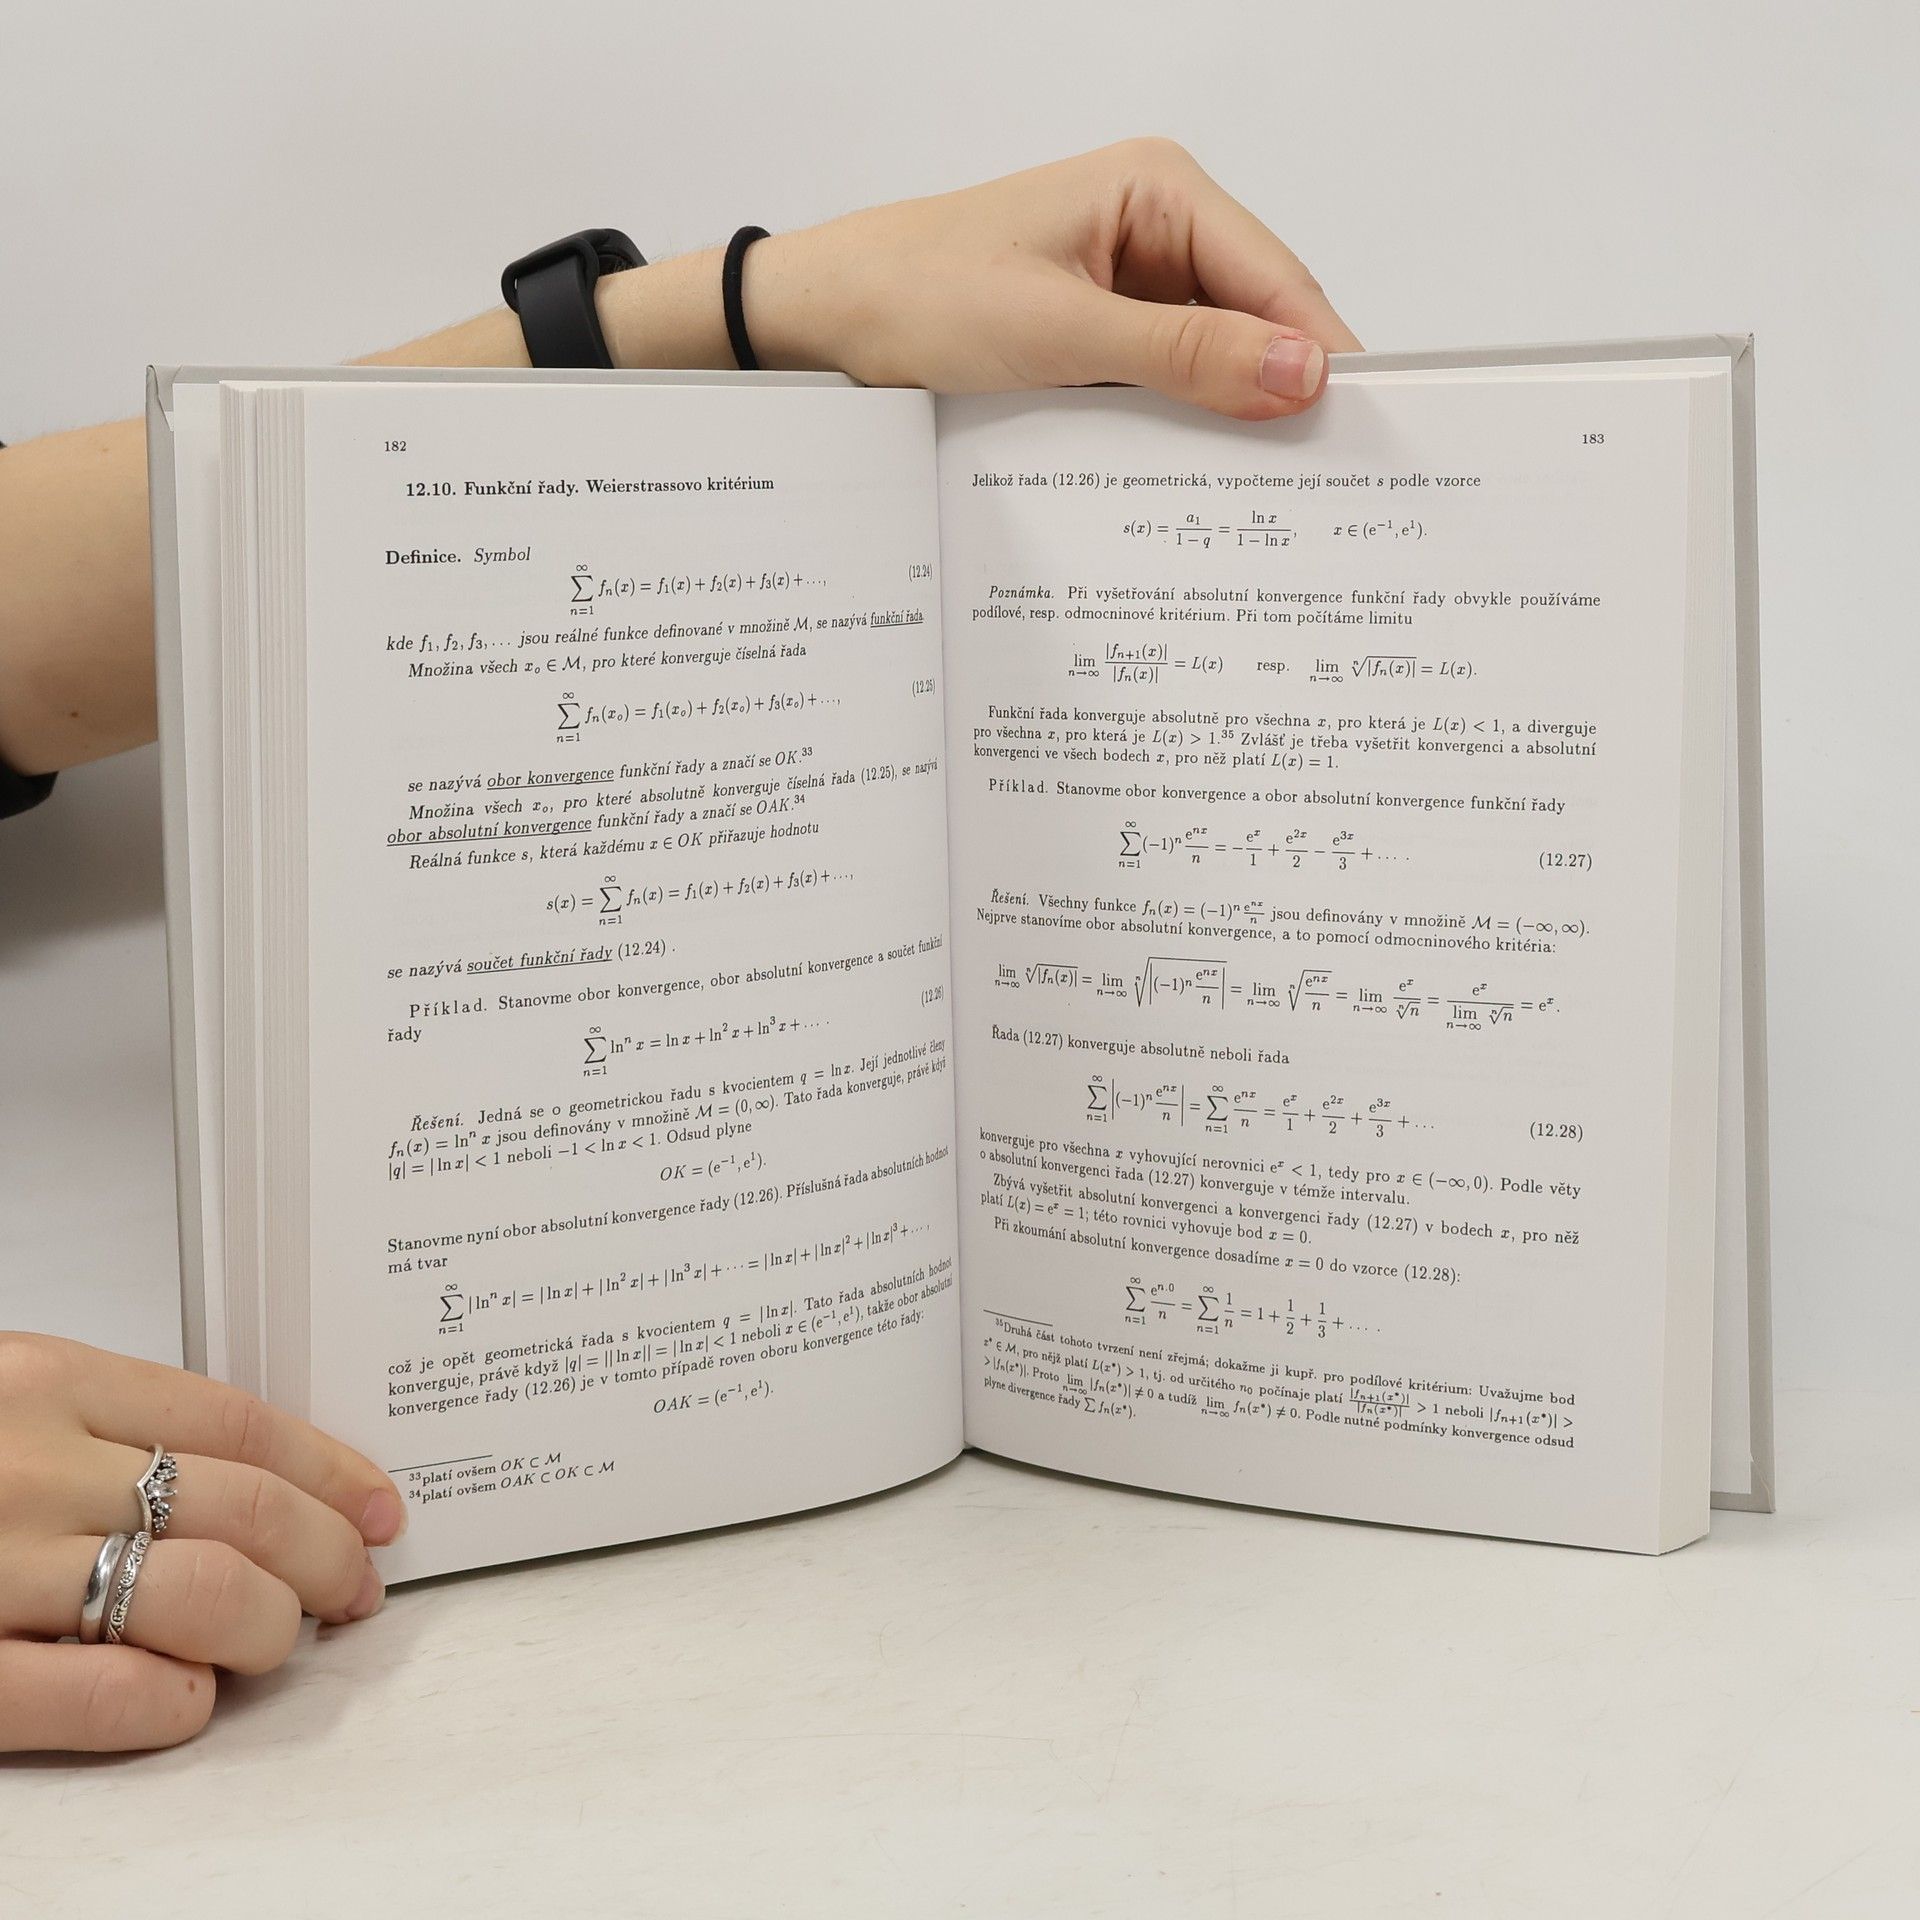 182
12.10. Funkční řady. Weierstrassovo kritérium
Definice. Symbol
∞∑n=1 fₙ(x) = f₁(x) + f₂(x) + f₃(x) + ..., (12.24)
kde f₁, f₂, f₃, ... jsou reálné funkce definované v množině M, se nazývá funkční řada.
Množina všech xₒ ∈ M, pro které konverguje číselná řada
∞∑n=1 fₙ(xₒ) = f₁(xₒ) + f₂(xₒ) + f₃(xₒ) + ..., (12.25)
se nazývá obor konvergence funkční řady a značí se OK.³³
Množina všech xₒ, pro které absolutně konverguje číselná řada (12.25), se nazývá
obor absolutní konvergence funkční řady a značí se OAK.³⁴
Reálná funkce s, která každému x ∈ OK přiřazuje hodnotu
s(x) = ∞∑n=1 fₙ(x) = f₁(x) + f₂(x) + f₃(x) + ...,
se nazývá součet funkční řady (12.24) .
Příklad. Stanovme obor konvergence, obor absolutní konvergence a součet funkční
řady
∞∑n=1 lnⁿ x = ln x + ln² x + ln³ x + ... . (12.26)
Řešení. Jedná se o geometrickou řadu s kvocientem q = ln x. Její jednotlivé členy
fₙ(x) = lnⁿ x jsou definovány v množině M = (0, ∞). Tato řada konverguje, právě když
|q| = | ln x| < 1 neboli −1 < ln x < 1. Odsud plyne
OK = (e⁻¹, e¹).
Stanovme nyní obor absolutní konvergence řady (12.26). Příslušná řada absolutních hodnot
má tvar
∞∑n=1 | lnⁿ x| = | ln x| + | ln² x| + | ln³ x| + ... = | ln x| + | ln x|² + | ln x|³ + ... ,
což je opět geometrická řada s kvocientem q = | ln x|. Tato řada absolutních hodnot
konverguje, právě když |q| = || ln x|| = | ln x| < 1 neboli x ∈ (e⁻¹, e¹), takže obor absolutní
konvergence řady (12.26) je v tomto případě roven oboru konvergence této řady:
OAK = (e⁻¹, e¹).
³³platí ovšem OK ⊂ M
³⁴platí ovšem OAK ⊂ OK ⊂ M
183
Jelikož řada (12.26) je geometrická, vypočteme její součet s podle vzorce
s(x) = a₁/(1 − q) = ln x/(1 − ln x), x ∈ (e⁻¹, e¹).
Poznámka. Při vyšetřování absolutní konvergence funkční řady obvykle používáme
podílové, resp. odmocninové kritérium. Při tom počítáme limitu
lim n→∞ |fₙ₊₁(x)|/|fₙ(x)| = L(x) resp. lim n→∞ ⁿ√|fₙ(x)| = L(x).
Funkční řada konverguje absolutně pro všechna x, pro která je L(x) < 1, a diverguje
pro všechna x, pro která je L(x) > 1.³⁵ Zvlášť je třeba vyšetřit konvergenci a absolutní
konvergenci ve všech bodech x, pro něž platí L(x) = 1.
Příklad. Stanovme obor konvergence a obor absolutní konvergence funkční řady
∞∑n=1 (−1)ⁿ eⁿˣ/n = − eˣ/1 + e²ˣ/2 − e³ˣ/3 + ... . (12.27)
Řešení. Všechny funkce fₙ(x) = (−1)ⁿ eⁿˣ/n jsou definovány v množině M = (−∞, ∞).
Nejprve stanovíme obor absolutní konvergence, a to pomocí odmocninového kritéria:
lim n→∞ ⁿ√|fₙ(x)| = lim n→∞ ⁿ√|(−1)ⁿ eⁿˣ/n| = lim n→∞ ⁿ√(eⁿˣ/n) = lim n→∞ eˣ/ⁿ√n = eˣ/(lim n→∞ ⁿ√n) = eˣ.
Řada (12.27) konverguje absolutně neboli řada
∞∑n=1 |(−1)ⁿ eⁿˣ/n| = ∞∑n=1 eⁿˣ/n = eˣ/1 + e²ˣ/2 + e³ˣ/3 + ... (12.28)
konverguje pro všechna x vyhovující nerovnici eˣ < 1, tedy pro x ∈ (−∞, 0). Podle věty
o absolutní konvergenci řada (12.27) konverguje v témže intervalu.
Zbývá vyšetřit absolutní konvergenci a konvergenci řady (12.27) v bodech x, pro něž
platí L(x) = eˣ = 1; této rovnici vyhovuje bod x = 0.
Při zkoumání absolutní konvergence dosadíme x = 0 do vzorce (12.28):
∞∑n=1 eⁿ·⁰/n = ∞∑n=1 1/n = 1 + 1/2 + 1/3 + ... .
³⁵Druhá část tohoto tvrzení není zřejmá; dokažme ji kupř. pro podílové kritérium: Uvažujme bod
x* ∈ M, pro nějž platí L(x*) > 1, tj. od určitého n₀ počínaje platí |fₙ₊₁(x*)|/|fₙ(x*)| > 1 neboli |fₙ₊₁(x*)| >
> |fₙ(x*)|. Proto lim n→∞ |fₙ(x*)| ≠ 0 a tudíž lim n→∞ fₙ(x*) ≠ 0. Podle nutné podmínky konvergence odsud
plyne divergence řady ∑ fₙ(x*).